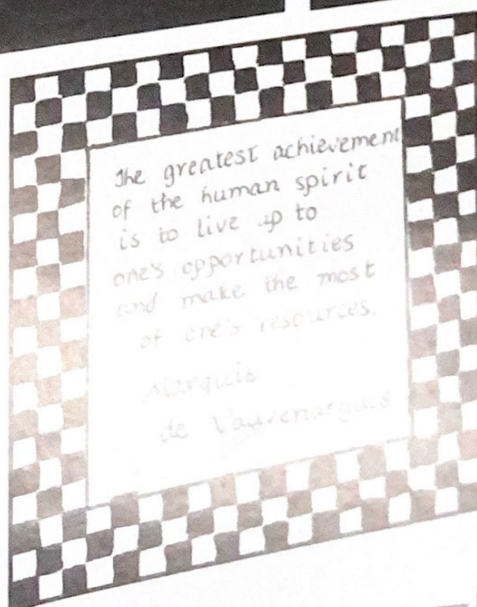 The greatest achievement
of the human spirit
is to live up to
one's opportunities
and make the most
of one's resources.
Marquis
de Vauvenargues